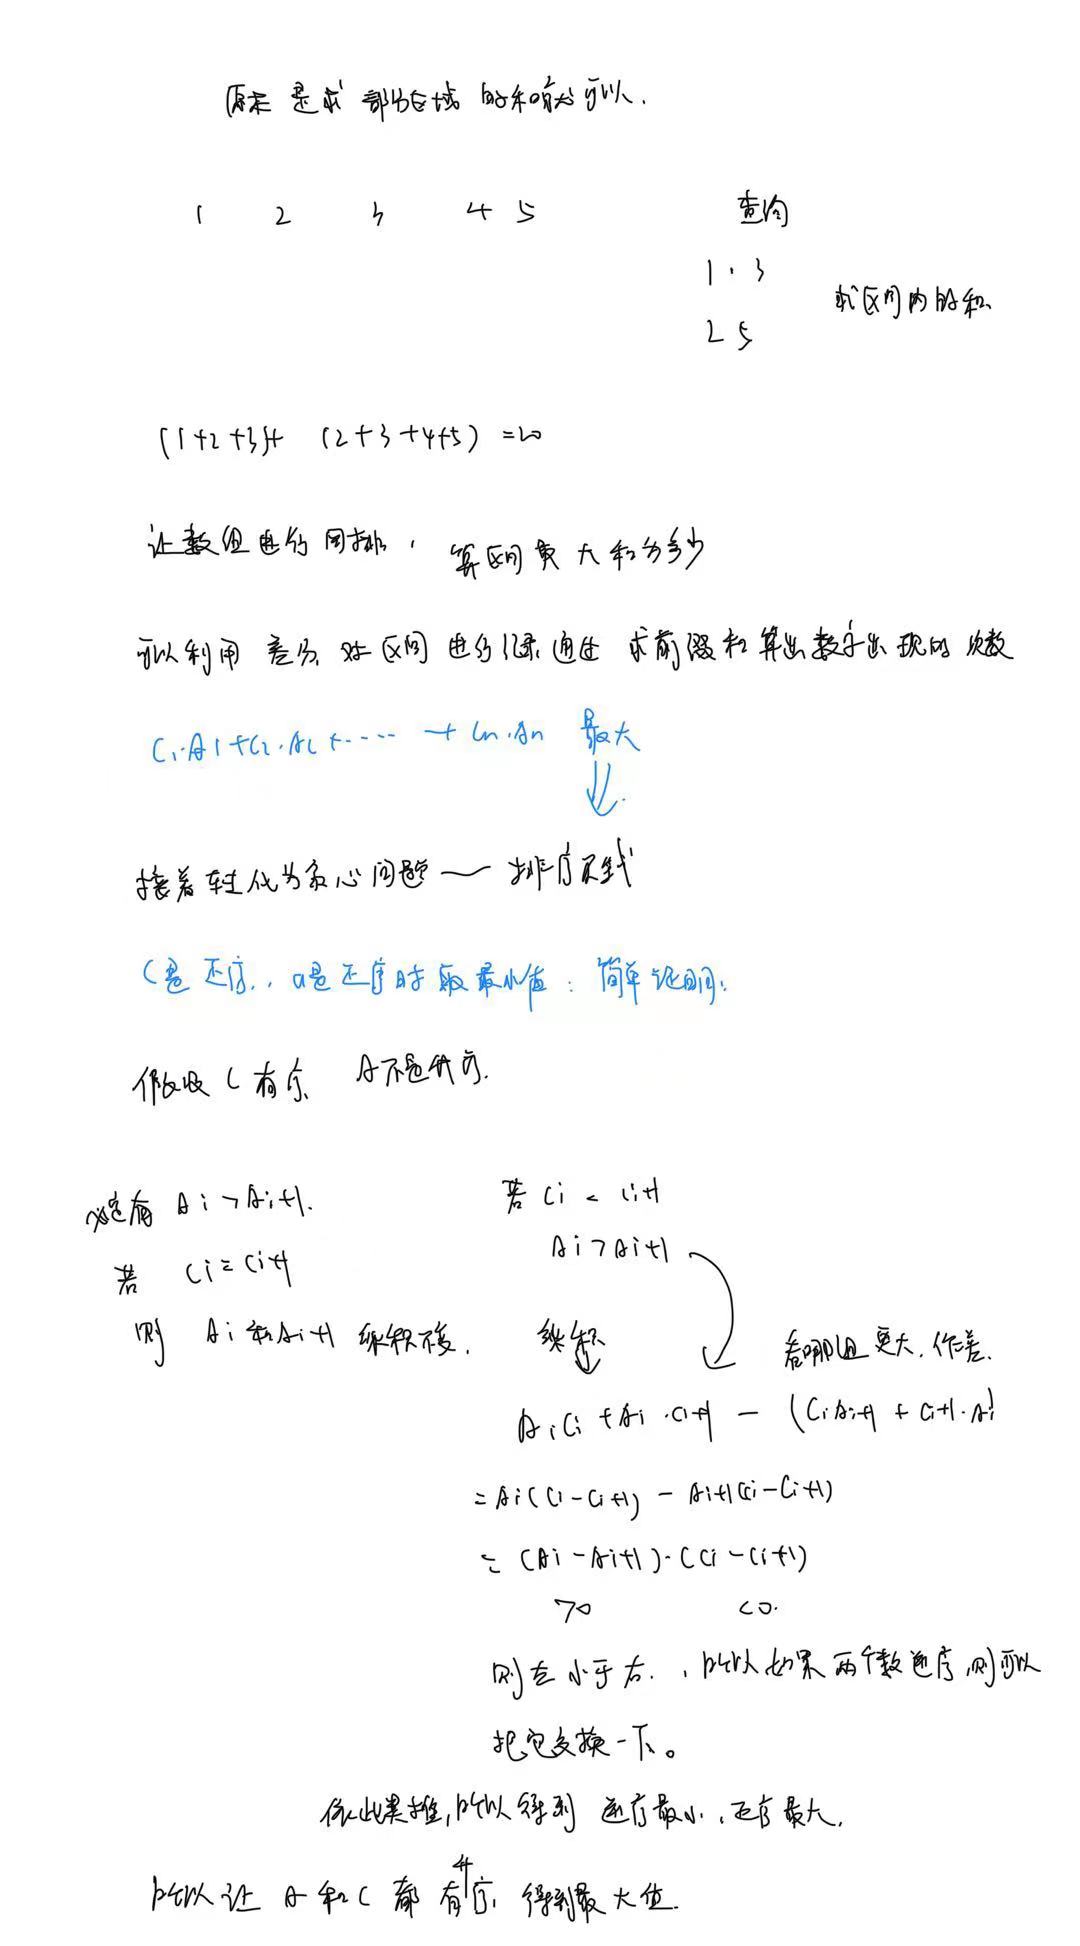 原来是求部分区域的和就可以.
1 2 3 4 5
查询
1 . 3
2 5
求区间内的和
(1+2+3)+ (2+3+4+5) =20
让数组进行 , 算区间最大和为多少
可以利用差分,对区间进行记录,通过求前缀和算出数字出现的次数
C1·A1+C2·A2+····· + Cn·An 最大
接着转化为贪心问题 — 排序
C是正序., a是正序时取最小值: 简单证明:
假设C有序 A不是升序.
必定有 Ai>Ai+1.
若 Ci=Ci+1
则 Ai和Ai+1 乘积不变.
若 Ci < Ci+1
Ai>Ai+1
乘积
看哪组更大,作差.
AiCi+Ai·Ci+1 - (CiAi+1+Ci+1·Ai)
=Ai(Ci-Ci+1) - Ai+1(Ci-Ci+1)
=(Ai-Ai+1)·(Ci-Ci+1)
>0 <0.
则左小于右., 所以如果两个数逆序,则可以
把它交换一下。
依此类推,所以得到 逆序最小,正序最大.
所以让A和C都有升序,得到最大值.